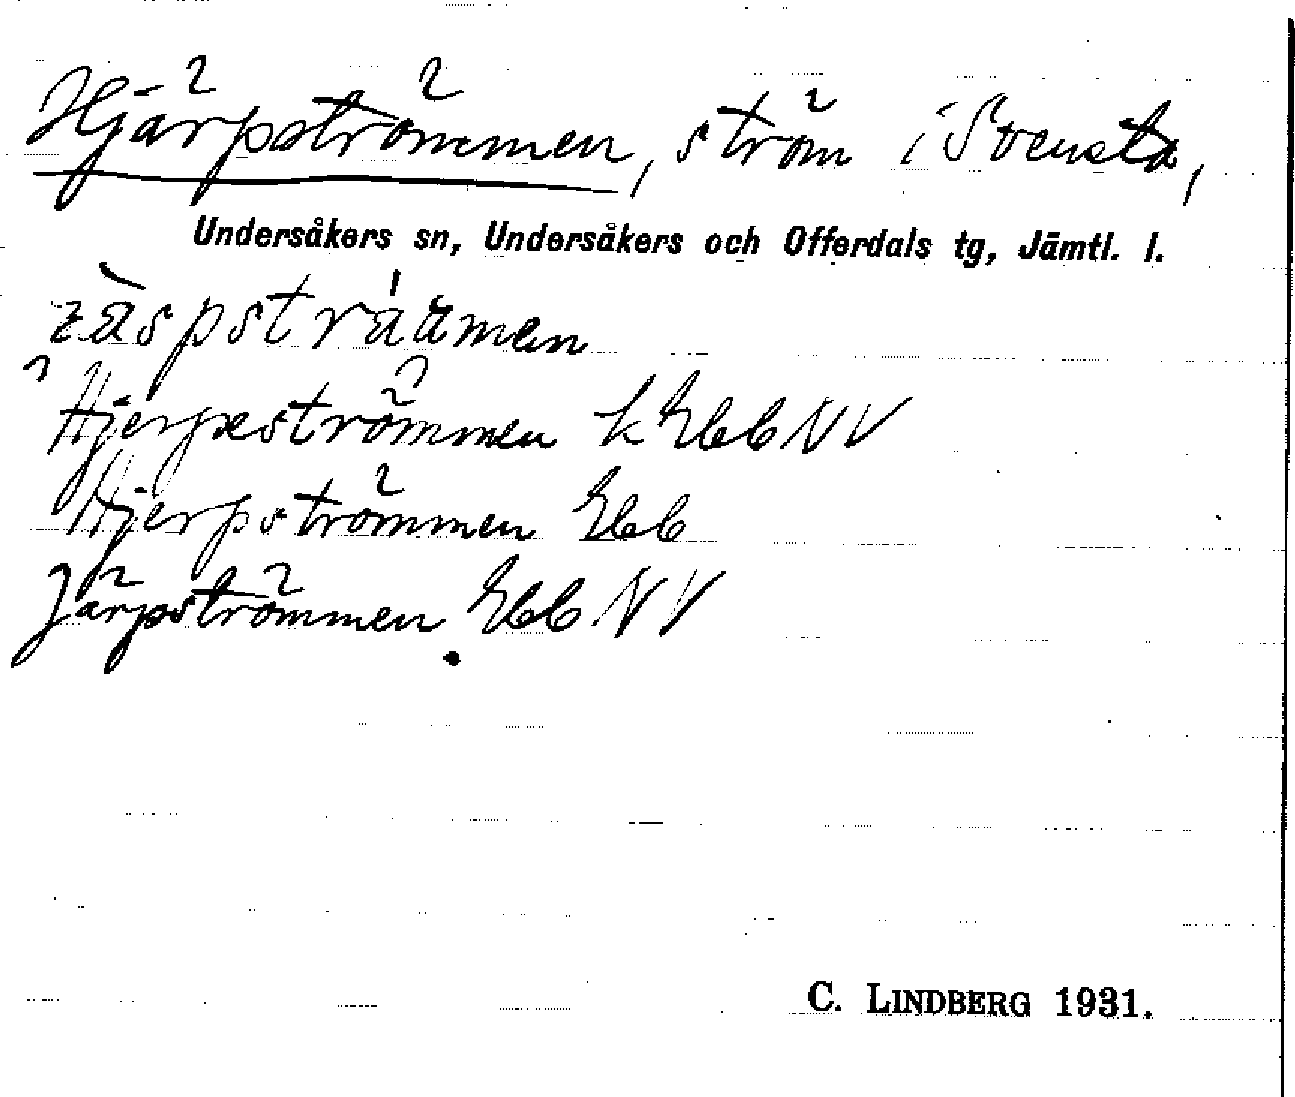 Hjärpströmmen, ström i Svensta,
Undersåkers sn, Undersåkers och Offerdals tg, Jämtl. l.
Hjerpeströmmen k Ebb NV
Hjerpströmmen Ebb
Järpströmmen Ebb NV
C. LINDBERG 1931.